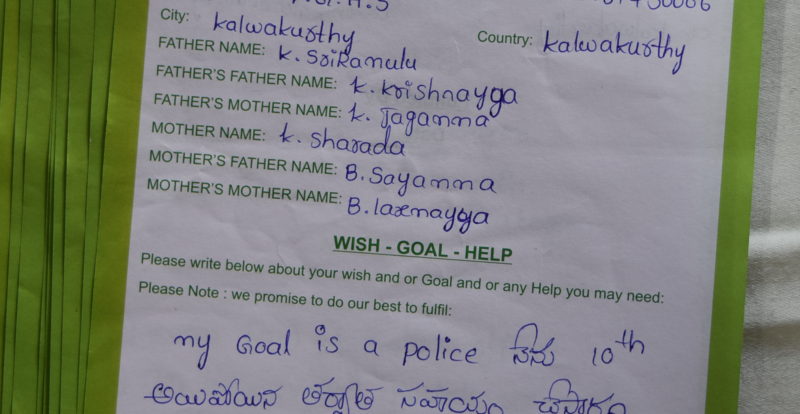 City: kalwakurthy Country: kalwakurthy
FATHER NAME: K. SriRamulu
FATHER'S FATHER NAME: K. Krishnayya
FATHER'S MOTHER NAME: K. Jaganma
MOTHER NAME: K. Sharada
MOTHER'S FATHER NAME: B. Sayamma
MOTHER'S MOTHER NAME: B. laxmayya
WISH - GOAL - HELP
Please write below about your wish and or Goal and or any Help you may need:
Please Note : we promise to do our best to fulfil:
my Goal is a police నేను 10th
అయిపోయిన తర్వాత సహాయం